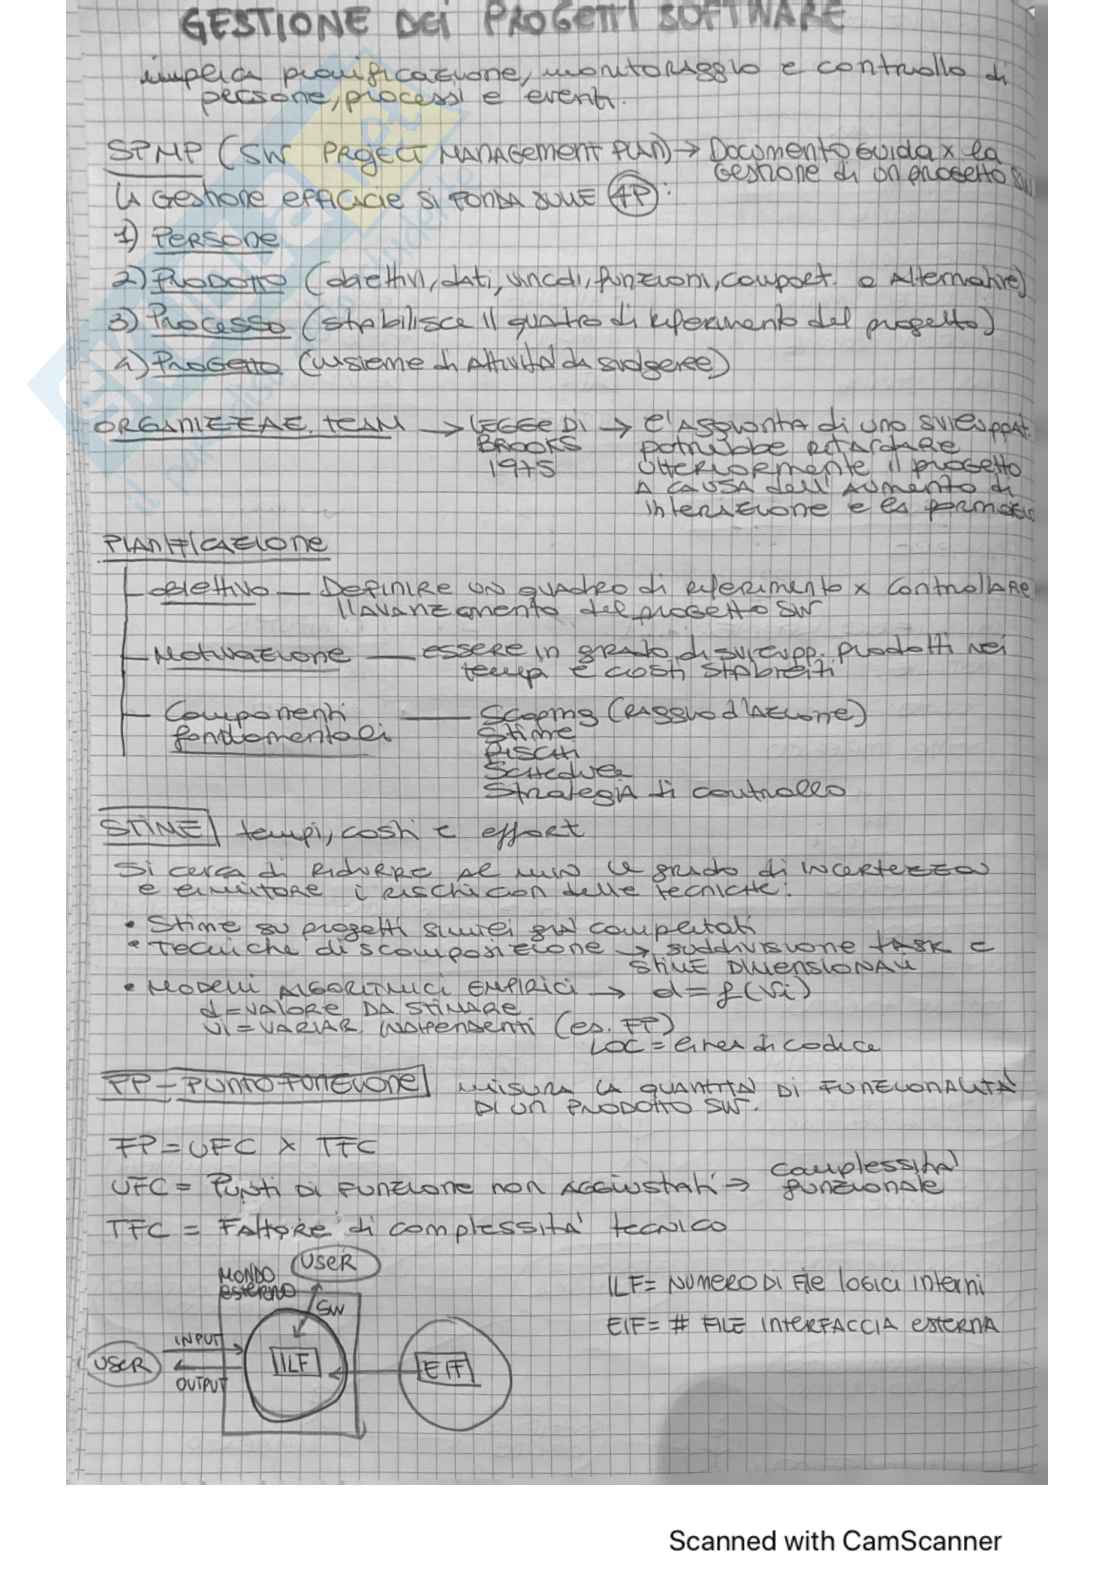 GESTIONE DEI PROGETTI SOFTWARE
implica pianificazione, monitoraggio e controllo di
persone, processi e eventi.
SPMP (SW PROJECT MANAGEMENT PLAN) → Documento Guida x la
Gestione di un progetto SW
La Gestione efficace si FONDA SULLE 4P:
1) Persone
2) Prodotto (obiettivi, dati, vincoli, funzioni, comport. e Alternative)
3) Processo (stabilisce il quadro di riferimento del progetto)
4) Progetto (insieme di attività da svolgere)
ORGANIZZAZ. TEAM → LEGGE DI → l'Aggiunta di uno sviluppat.
BROOKS potrebbe RITARDARE
1975 ULTERIORMENTE il progetto
A CAUSA dell'AUMENTO di
INTERAZIONE e la formaz.
PIANIFICAZIONE
obiettivo — DEFINIRE UN quadro di riferimento x controllare
l'AVANZAMENTO del progetto SW
MOTIVAZIONE — essere in grado di svilupp. prodotti nei
tempi e costi stabiliti
Componenti — Scoping (RAGGIO d'AZIONE)
fondamentali Stime
RISCHI
Schedule
Strategia di controllo
STIME tempi, costi e effort
Si cerca di RIDURRE al min il grado di INCERTEZZA
e limitare i rischi con delle tecniche:
• Stime su progetti simili già completati
• Tecniche di scomposizione → suddivisione task e
STIME DIMENSIONALI
• MODELLI ALGORITMICI EMPIRICI → d = f(vi)
d = VALORE DA STIMARE
vi = VARIAB. INDIPENDENTI (es. FP)
LOC = linea di codice
FP - PUNTO FUNZIONE MISURA LA QUANTITÀ DI FUNZIONALITÀ
DI UN PRODOTTO SW.
FP = UFC x TFC
UFC = Punti DI FUNZIONE non AGGIUSTATI → complessità
funzionale
TFC = FATTORE di complessità tecnico
MONDO USER
ESTERNO
SW
ILF = NUMERO DI File logici interni
EIF = # FILE INTERFACCIA ESTERNA
USER INPUT ILF EIF
OUTPUT
Scanned with CamScanner